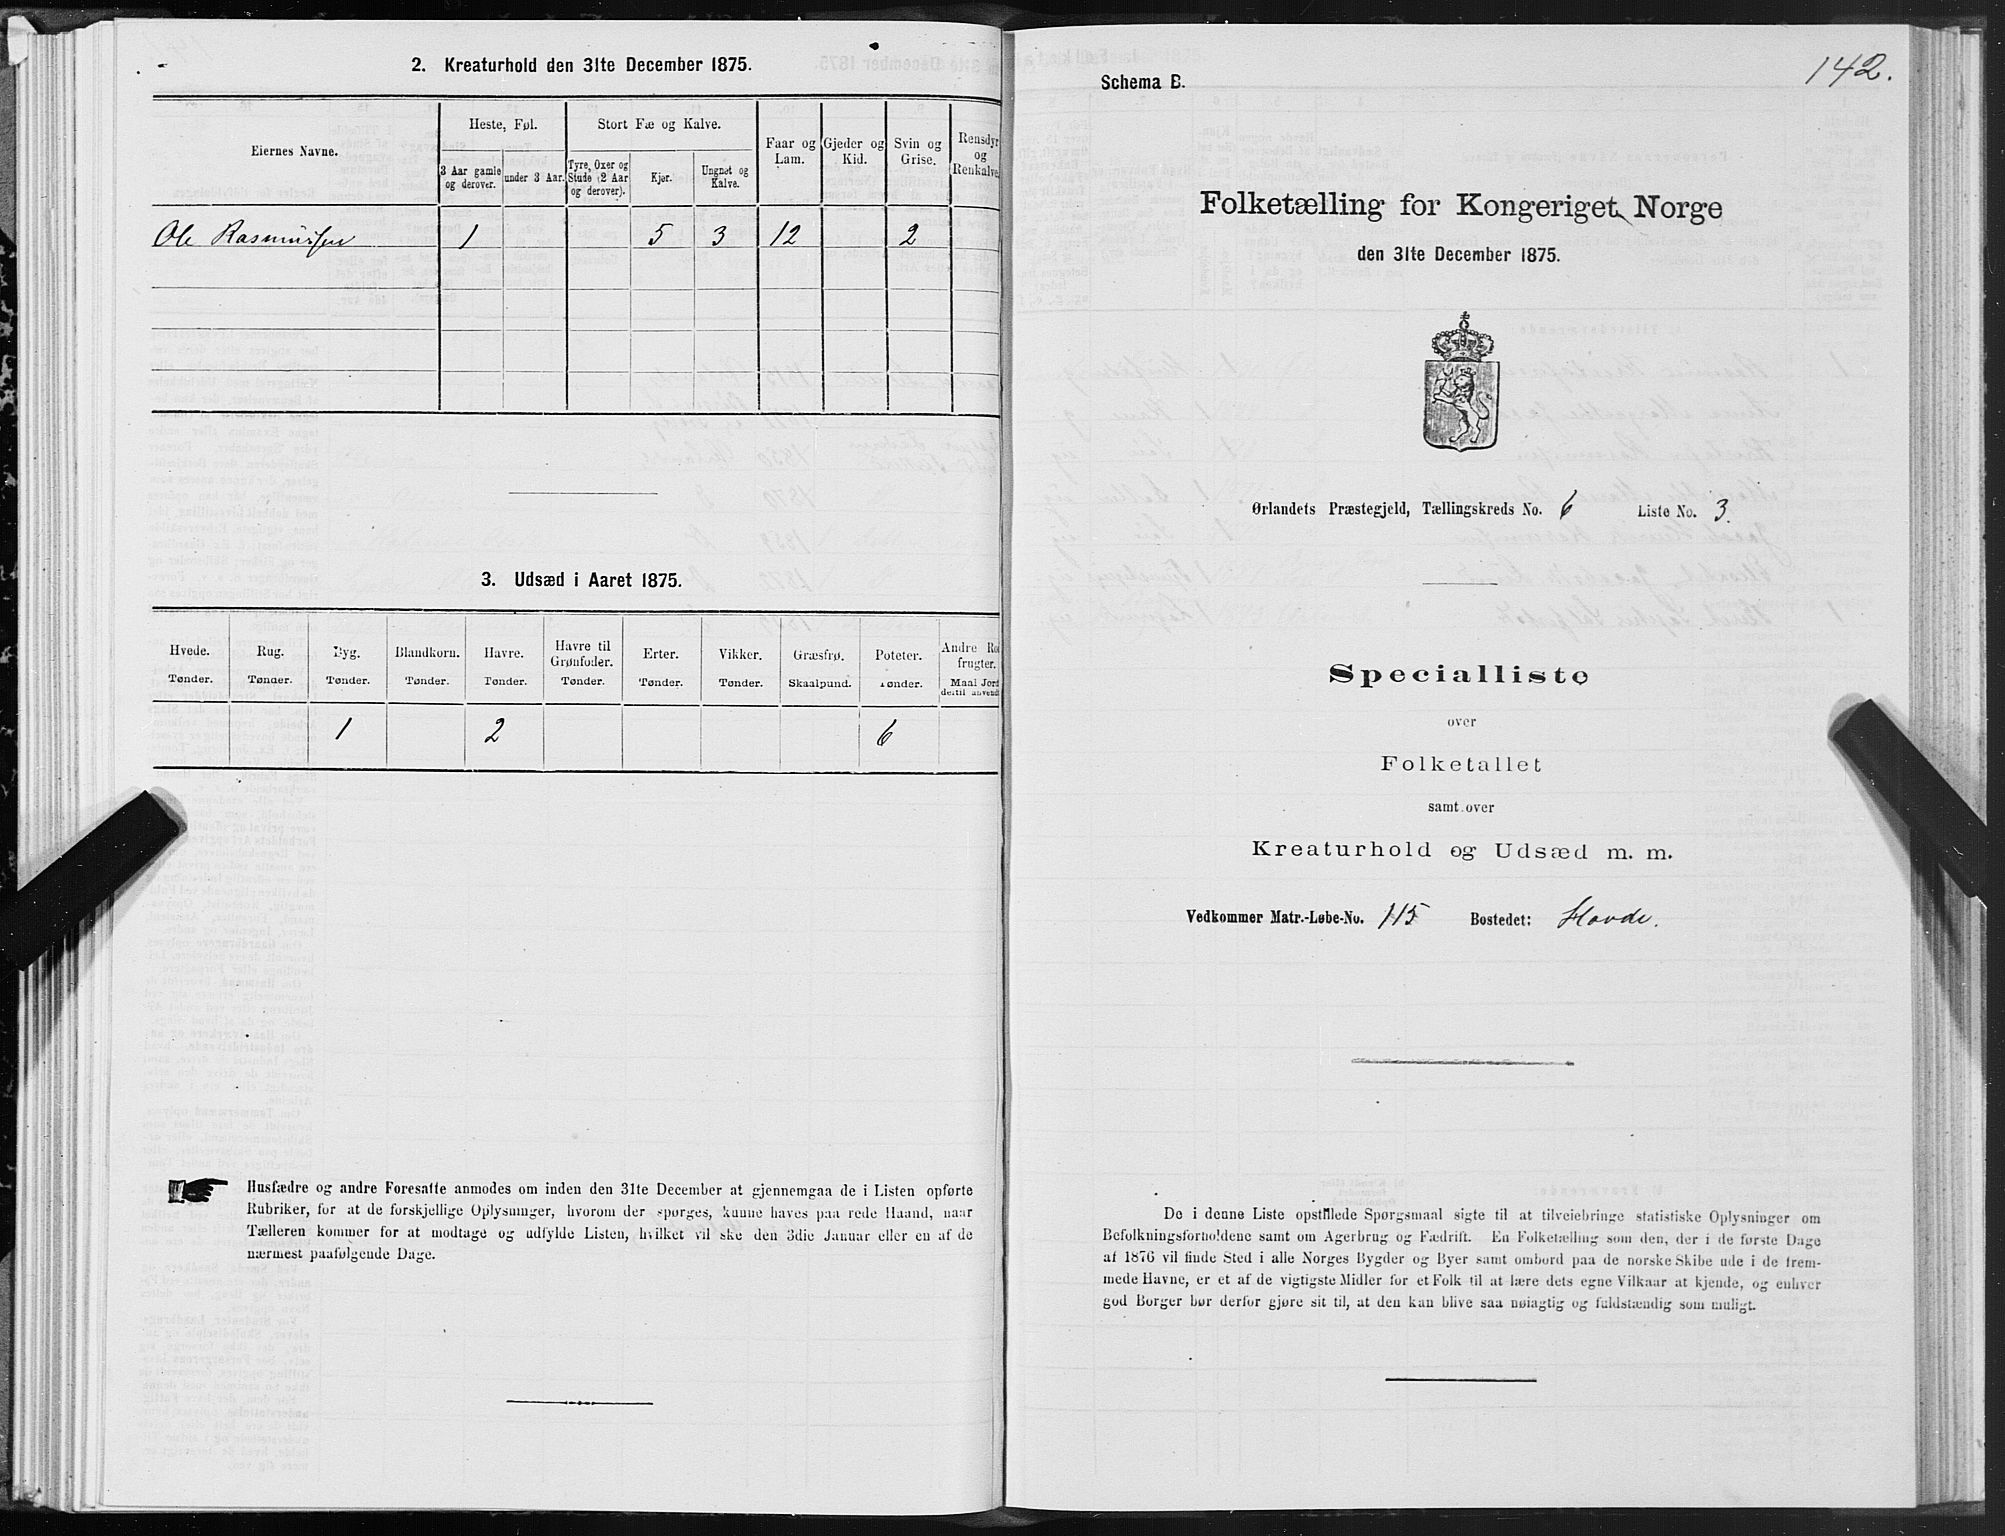 2. Kreaturhold den 31te December 1875.
Eiernes Navne.
Heste, Føl.
Stort Fæ og Kalve.
Faar og Lam.
Gjeder og Kid.
Svin og Grise.
Rensdyr og Renkalve.
3 Aar gamle og derover.
under 3 Aar.
Tyre, Oxer og Stude (2 Aar og derover).
Kjør.
Ungnøt og Kalve.
Ole Rasmussen 1 5 3 12 2
3. Udsæd i Aaret 1875.
Hvede. Rug. Byg. Blandkorn. Havre. Havre til Grønfoder. Erter. Vikker. Græsfrø. Poteter. Andre Rod frugter.
Tønder. Tønder. Tønder. Tønder. Tønder. Tønder. Tønder. Tønder. Skaalpund. Tønder. Maal Jord dertil anvendt
1 2 6
Husfædre og andre Foresatte anmodes om inden den 31te December at gjennemgaa de i Listen opførte
Rubriker, for at de forskjellige Oplysninger, hvorom der spørges, kunne haves paa rede Haand, naar
Tælleren kommer for at modtage og udfylde Listen, hvilket vil ske den 3die Januar eller en af de
nærmest paafølgende Dage.
142.
Schema B.
Folketælling for Kongeriget Norge
den 31te December 1875.
Ørlandets Præstegjeld, Tællingskreds No. 6 Liste No. 3.
Specialliste
over
Folketallet
samt over
Kreaturhold og Udsæd m. m.
Vedkommer Matr.-Løbe-No. 115 Bostedet: Hovde.
De i denne Liste opstillede Spørgsmaal sigte til at tilveiebringe statistiske Oplysninger om
Befolkningsforholdene samt om Agerbrug og Fædrift. En Folketælling som den, der i de første Dage
af 1876 vil finde Sted i alle Norges Bygder og Byer samt ombord paa de norske Skibe ude i de frem-
mede Havne, er et af de vigtigste Midler for et Folk til at lære dets egne Vilkaar at kjende, og enhver
god Borger bør derfor gjøre sit til, at den kan blive saa nøiagtig og fuldstændig som muligt.